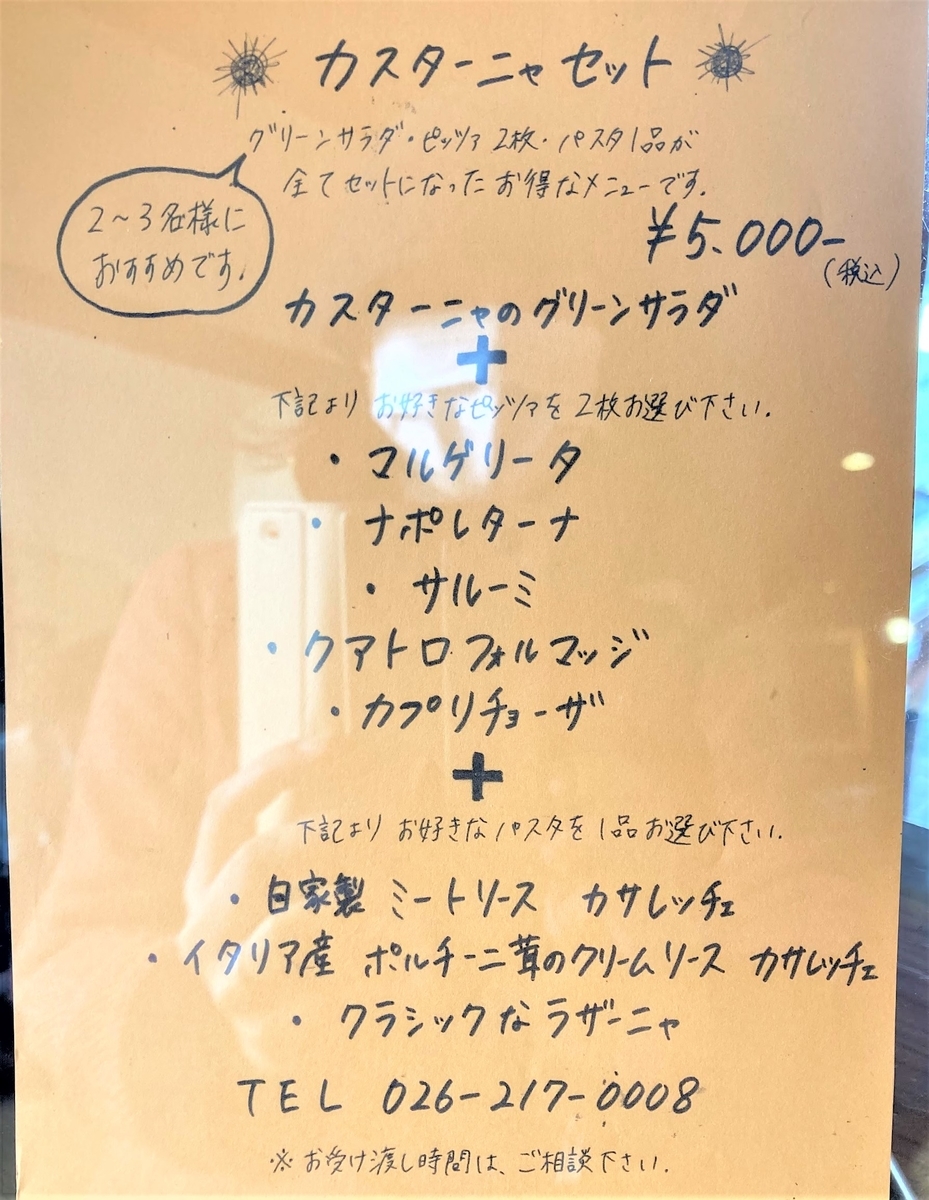 カスターニャセット
グリーンサラダ・ピッツァ2枚・パスタ1品が
全てセットになったお得なメニューです.
2～3名様に
おすすめです.
¥5.000-
(税込)
カスターニャのグリーンサラダ
+
下記より お好きなピッツァを 2枚お選び下さい.
・マルゲリータ
・ナポレターナ
・サルーミ
・クアトロフォルマッジ
・カプリチョーザ
+
下記より お好きなパスタを 1品お選び下さい.
・自家製 ミートソース カサレッチェ
・イタリア産 ポルチーニ茸のクリームソース カサレッチェ
・クラシックなラザーニャ
TEL 026-217-0008
※お受け渡し時間は、ご相談下さい.